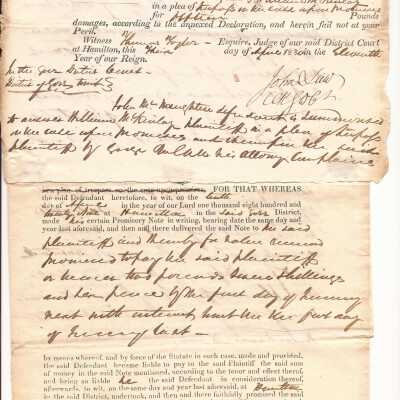 in a plea of trespass on the case upon promises
for fifteen Pounds
damages, according to the annexed Declaration, and herein fail not at your
Peril.
Witness Thomas Taylor — Esquire, Judge of our said District Court
at Hamilton, this third day of April 1830 in the Eleventh
Year of our Reign.
John Law
In the Gore District Court
District of Gore to wit
John McNaughton defendant is summoned
to answer William McKinlay plaintiff in a plea of trespass
on the case upon Promises and thereupon the said
plaintiff by George his Attorney complains
FOR THAT WHEREAS
the said Defendant heretofore, to wit, on the tenth
day of April in the year of our Lord one thousand eight hundred and
twenty nine at Hamilton in the said Gore District,
made his certain Promissory Note in writing, bearing date the same day and
year last aforesaid, and then and there delivered the said Note to the said
plaintiff and thereby for value received
promised to pay the said plaintiff
or bearer two pounds seven shillings
and ten pence by the first day of January
next with interest from the first day
of January last —
by means whereof, and by force of the Statute in such case, made and provided,
the said Defendant became liable to pay to the said Plaintiff the said sum
of money in the said Note mentioned, according to the tenor and effect thereof,
and being so liable he the said Defendant in consideration thereof,
afterwards, to wit, on the same day and year last aforesaid, at Hamilton
in the said District, undertook, and then and there faithfully promised the said